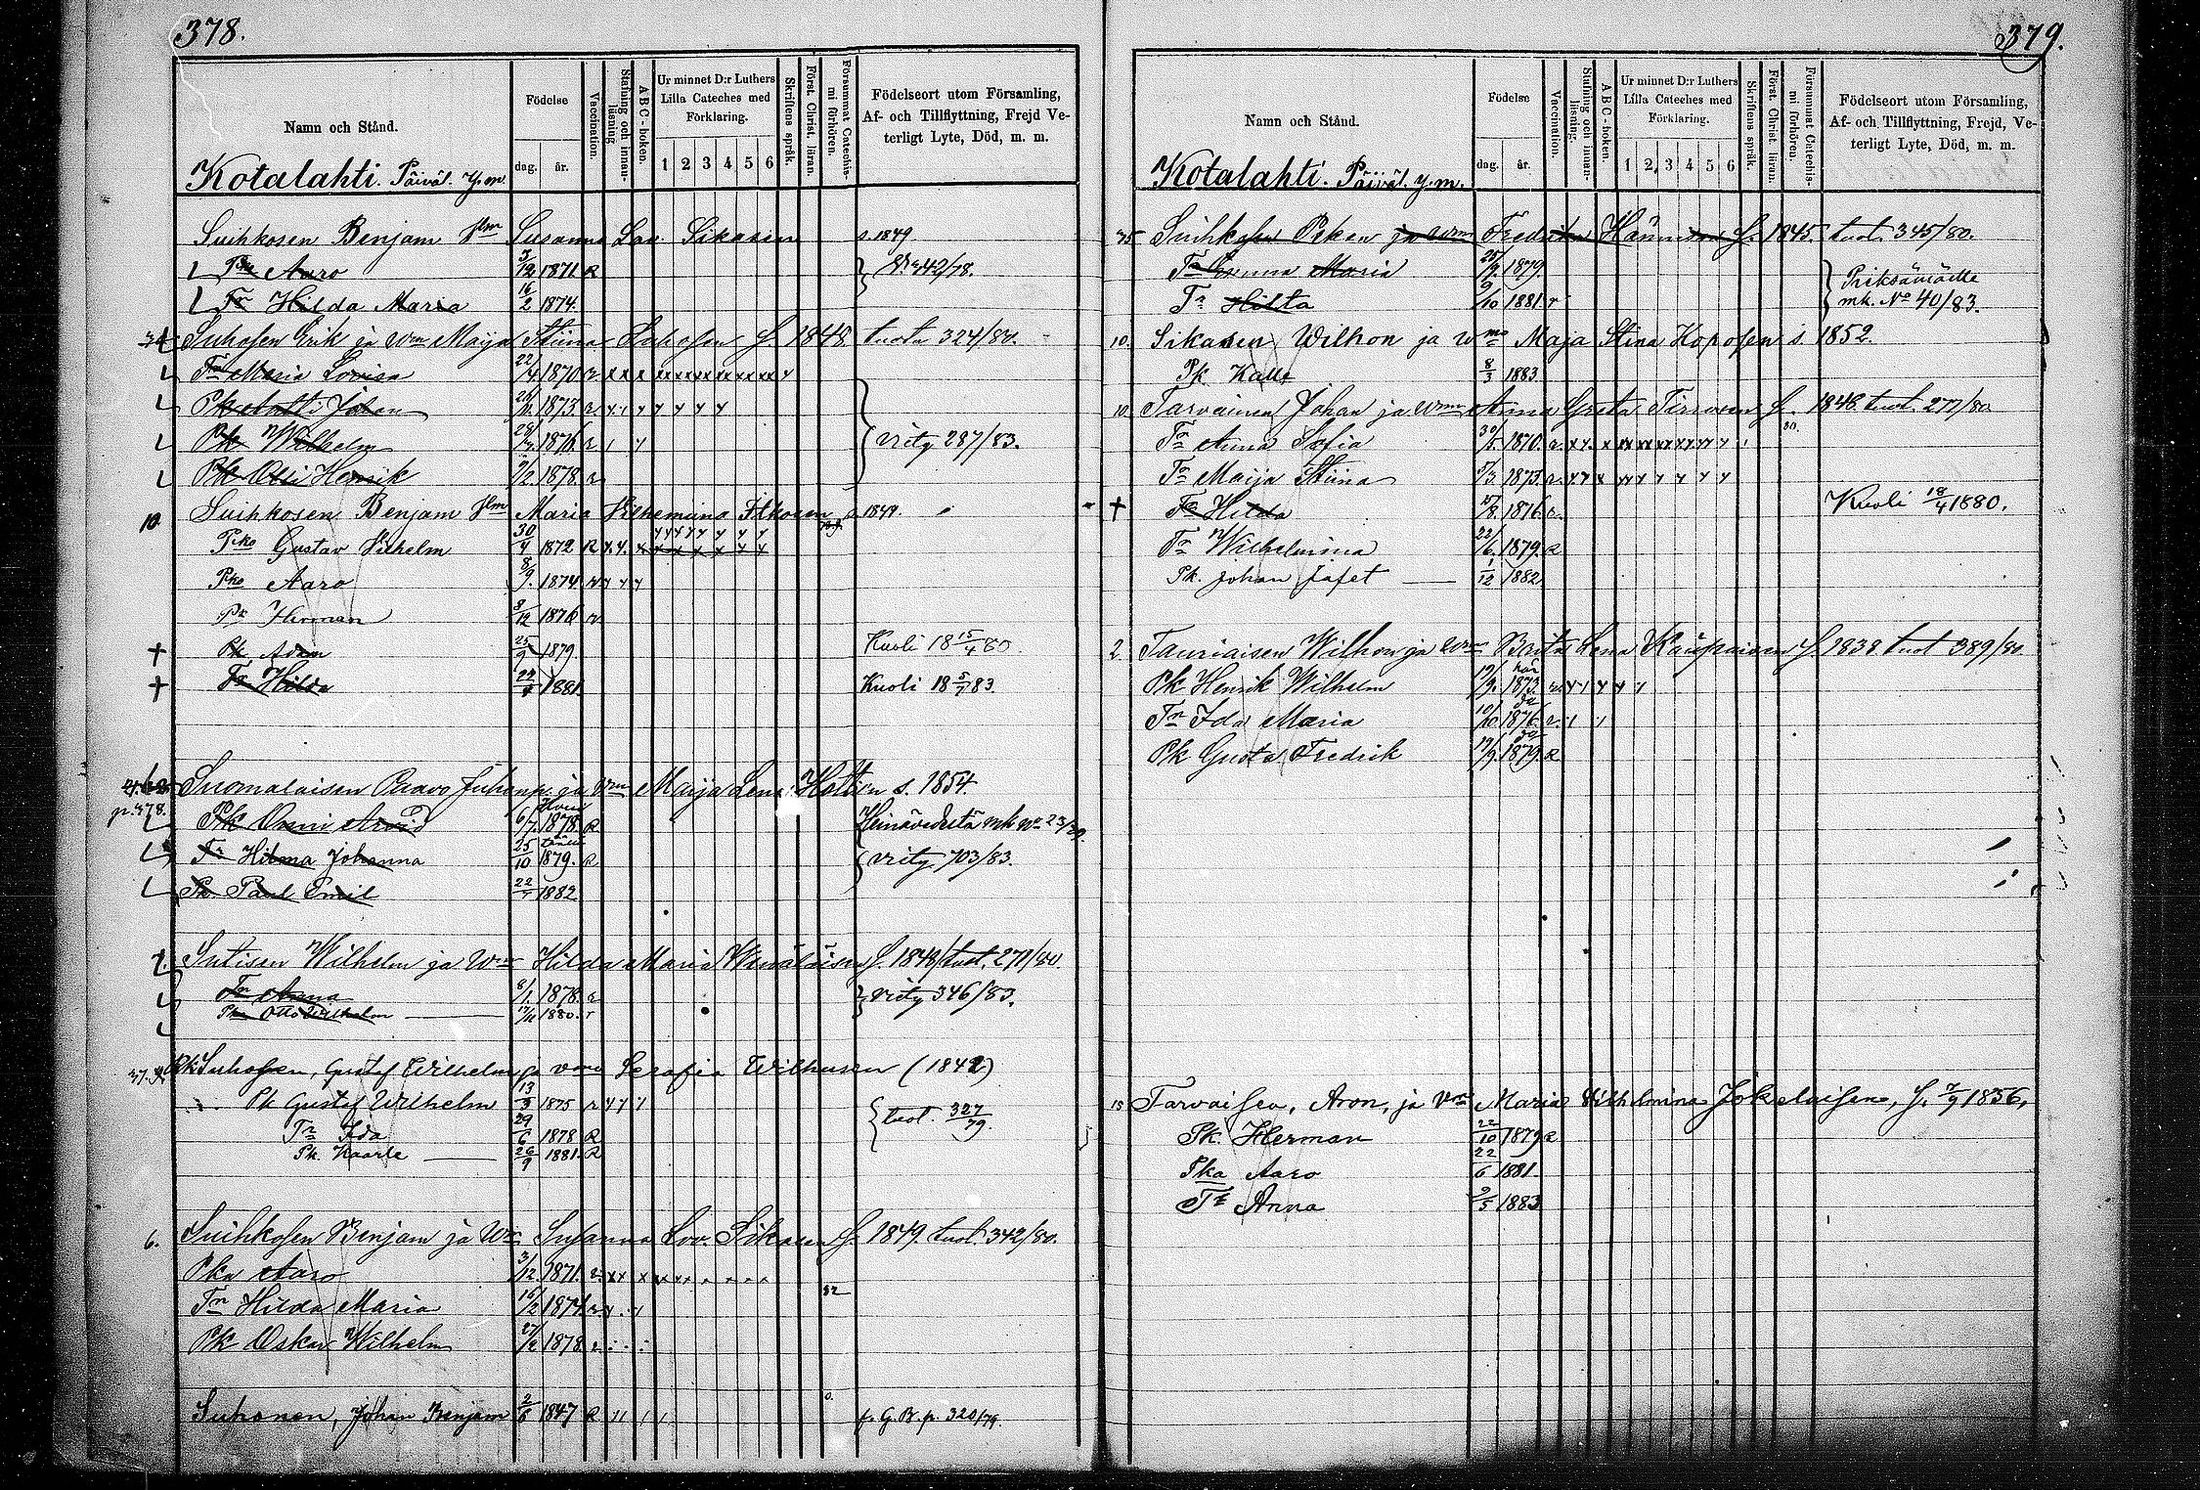 378.
Namn och Stånd.
Födelse
dag. år.
Vaccination.
Stafning och innanläsning
A B C-boken.
Ur minnet D:r Luthers Lilla Cateches med Förklaring.
1 2 3 4 5 6
Skriftens språk.
Först. Christ. läran.
Försummat Catechismi förhören.
Födelseort utom Församling, Af- och Tillflyttning, Frejd Veterligt Lyte, Död, m. m.
Kotalahti. Päiväl. y.m.
Suihkosen Benjam Susanna Lov. Sikasen s. 1849
Aaro 1871 R 42/78.
Tr Hilda Maria 16/2 1874.
Suhosen Erik ja Wm Maija Stiina S. 1848 tuotu 324/80.
Tr Maria Lovisa 22/4 1870
Pk Antti Johan 1873
Pk Wilhelm 1876 vrity 287/83.
Pk Olli Henrik 1878
10. Suihkosen Benjam Maria Vilhemiina Itkosen 1849.
Pko Gustav Vilhelm 30/4 1872 R
Pko Aaro 8/9 1874
Pk Herman 8/12 1876
Pk Adam 25/9 1879 Kuoli 18 15/4 80.
Tr Hilda 1881 Kuoli 18 5/7 83.
p. 378. Suomalaisen Paavo Juhana ja Wm Maija Lena Holtin s. 1854.
Pk Onni Arvid 6/7 1878 R Heinävedestä mk No 23/80.
Tr Hilma Johanna 25/10 1879. R vrity 703/83.
Pk Paul Emil 1882
Sutisen Wilhelm ja Wm Hilda Maria Wenäläisen S. 1848 tuot. 271/80
Tr Anna 8/1 1878 vrity 346/83.
Pk Otto Wilhelm 1880
Suhosen, Gustaf Wilhelm ja vmo Serafia Wilhusen (1842)
Pk Gustaf Wilhelm 13/3 1875
Tr Ida 29/6 1878 R tuot. 327/79.
Pk. Kaarle 26/9 1881. R
6. Suihkosen Benjam ja Wm Susanna Lov. Sikasen S. 1849 tuot. 342/80.
Pka Aaro 3/12 1871.
Tr Hilda Maria 16/2 1874
Pk Oskar Wilhelm 27/2 1878
Suhonen, Johan Benjam 2/6 1847 R f. G. B. p. 320/79.
379.
Namn och Stånd.
Födelse
dag. år.
Vaccination.
Stafning och innanläsning.
A B C-boken.
Ur minnet D:r Luthers Lilla Cateches med Förklaring.
1 2 3 4 5 6
Skriftens språk.
Först. Christ. läran.
Försummat Catechismi förhören.
Födelseort utom Församling, Af- och Tillflyttning, Frejd, Veterligt Lyte, Död, m. m.
Kotalahti. Päiväl. y.m.
35 Suihkosen Pekan ja Wm Fredrika Hännisen S. 1845. tuot. 345/80.
Tr Emma Maria 25/9 1879
Tr Hilta 9/10 1881 Pieksämäelle mk. No 40/83.
10. Sikasen Wilhon ja Wmo Maja Stina Koposen s. 1852.
Pk Kalle 8/3 1883
10. Tarvainen Johan ja Wm Anna Greta Tirrosen S. 1848. tuot. 277/80
Tr Anna Sofia 30/5 1870
Tr Maija Stiina 5/3 1873
Tr Hilda 1876 Kuoli 18/4 1880.
Tr Wilhelmina 22/6 1879 R
Pk. Johan Jafet 1/12 1882
2. Tauriaisen Wilhon ja Wm Brita Lena Kauppaisen S. 1838 tuot 389/80.
Pk Henrik Wilhelm 1873
Tr Ida Maria 10/10 1876
Pk Gusta Fredrik 19/9 1879 R
15 Tarvaisen, Aron, ja Vm Maria Vilhelmina Jokelaisen, S. 7/9 1856,
Pk. Herman 22/10 1879 R
Pka Aaro 22/6 1881
Tr Anna 1883